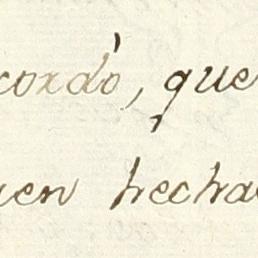 cordò, que
uen hecha